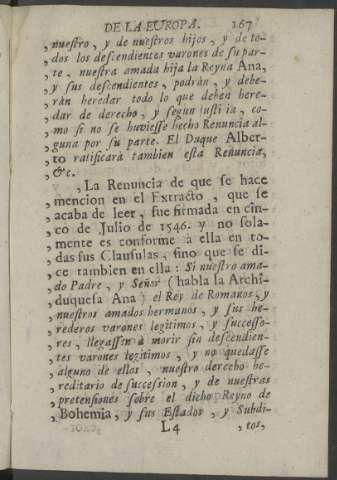 DE LA EUROPA. 167
, nuestro, y de nuestros hijos, y de to-
, dos los descendientes varones de su par-
, te, nuestra amada hija la Reyna Ana,
, y sus descendientes, podràn, y debe-
, ràn heredar todo lo que deben here-
, dar de derecho, y segun justi ia, co-
, mo si no se huviesse hecho Renuncia al-
, guna por su parte. El Duque Alber-
, to ratificarà tambien esta Renuncia,
, &c.
, La Renuncia de que se hace
, mencion en el Extracto, que se
, acaba de leer, fue firmada en cin-
, co de Julio de 1546. y no sola-
, mente es conforme à ella en to-
, das sus Clausulas, sino que se di-
, ce tambien en ella: Si nuestro ama-
, do Padre, y Señor (habla la Archi-
, duquesa Ana) el Rey de Romanos, y
, nuestros amados hermanos, y sus he-
, rederos varones legitimos, y successo-
, res, llegassen à morir sin descendien-
, tes varones legitimos, y no quedasse
, alguno de ellos, nuestro derecho he-
, reditario de succession, y de nuestras
, pretensiones sobre el dicho Reyno de
, Bohemia, y sus Estados, y Subdi-
L4 , tos,